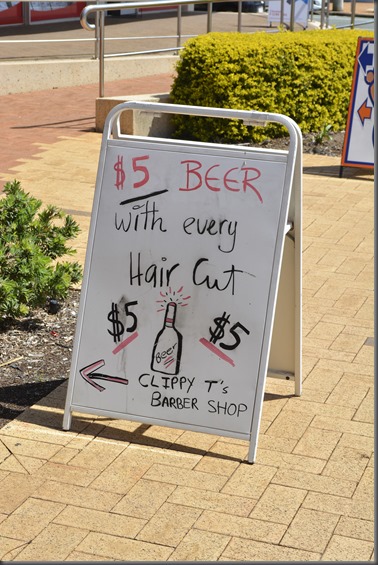 $5 BEER
with every
Hair Cut
$5 $5
Beer
CLIPPY T's
BARBER SHOP